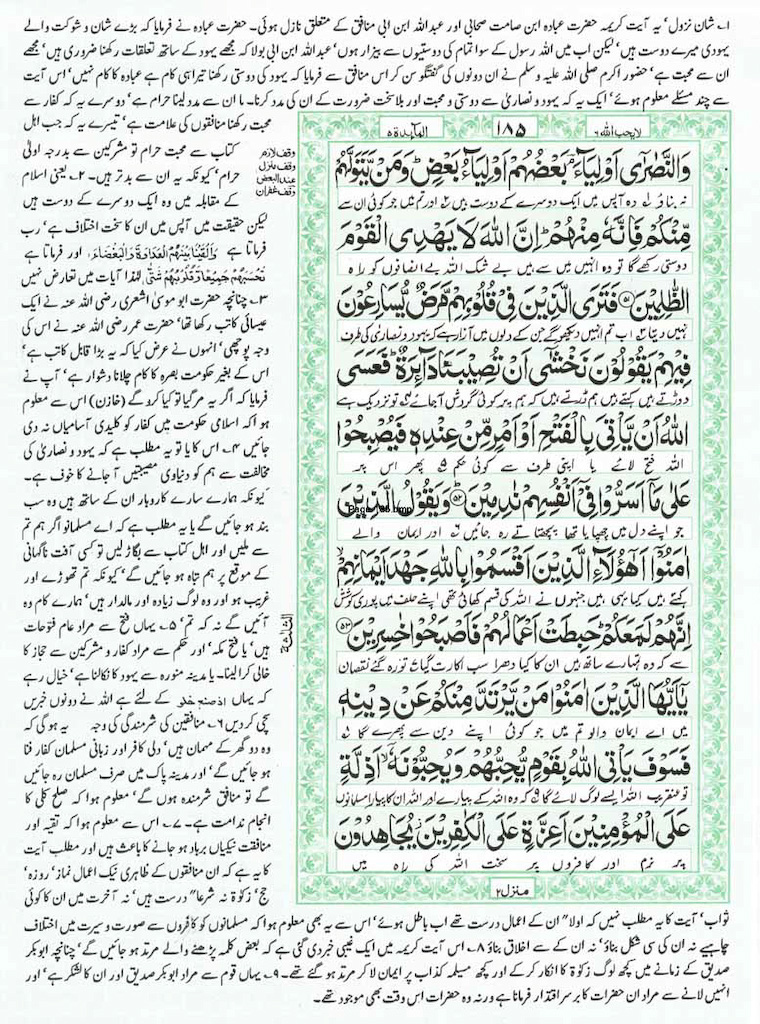 ۱۔ شان نزول' یہ آیت کریمہ حضرت عبادہ ابن صامت صحابی اور عبداللہ ابن ابی منافق کے متعلق نازل ہوئی۔ حضرت عبادہ نے فرمایا کہ بڑے شان و شوکت والے
یہودی میرے دوست ہیں' لیکن اب میں اللہ رسول کے سوا تمام کی دوستیوں سے بیزار ہوں' عبداللہ ابن ابی بولا کہ مجھے یہود کے ساتھ تعلقات رکھنا ضروری ہیں' مجھے
ان سے محبت ہے' حضور اکرم صلی اللہ علیہ وسلم نے ان دونوں کی گفتگو سن کر اس منافق سے فرمایا کہ یہود کی دوستی رکھنا تیرا ہی کام ہے عبادہ کا کام نہیں' اس آیت
سے چند مسئلے معلوم ہوئے' ایک یہ کہ یہود و نصاریٰ سے دوستی و محبت اور بلا سخت ضرورت کے ان کی مدد کرنا۔ یا ان سے مدد لینا حرام ہے' دوسرے یہ کہ کفار سے
محبت رکھنا منافقوں کی علامت ہے' تیسرے یہ کہ جب اہل
کتاب سے محبت حرام تو مشرکین سے بدرجہ اولیٰ
حرام' کیونکہ یہ ان سے بدتر ہیں۔ ۲۔ یعنی اسلام
کے مقابلہ میں وہ ایک دوسرے کے دوست ہیں
لیکن حقیقت میں آپس میں ان کا سخت اختلاف ہے' رب
فرماتا ہے وَاَلْقَيْنَا بَيْنَهُمُ الْعَدَاوَةَ وَالْبَغْضَآءَ، اور فرماتا ہے
تَحْسَبُهُمْ جَمِيْعًا وَّقُلُوْبُهُمْ شَتّٰى لہٰذا آیات میں تعارض نہیں
۳۔ چنانچہ حضرت ابو موسیٰ اشعری رضی اللہ عنہ نے ایک
عیسائی کاتب رکھا تھا' حضرت عمر رضی اللہ عنہ نے اس کی
وجہ پوچھی' انہوں نے عرض کیا کہ یہ بڑا قابل کاتب ہے'
اس کے بغیر حکومت بصرہ کا کام چلانا دشوار ہے' آپ نے
فرمایا کہ اگر یہ مر گیا تو کیا کرو گے (خازن) اس سے معلوم
ہوا کہ اسلامی حکومت میں کفار کو کلیدی آسامیاں نہ دی
جائیں ۴۔ اس کا یا تو یہ مطلب ہے کہ یہود و نصاریٰ کی
مخالفت سے ہم کو دنیاوی مصیبتیں آ جانے کا خوف ہے۔
کیونکہ ہمارے سارے کاروبار ان کے ساتھ ہیں وہ سب
بند ہو جائیں گے یا یہ مطلب ہے کہ اے مسلمانو اگر ہم تم
سے ملیں اور اہل کتاب سے بگاڑ لیں تو کسی آفت ناگہانی
کے موقع پر ہم تباہ ہو جائیں گے' کیونکہ تم تھوڑے اور
غریب ہو اور وہ لوگ زیادہ اور مالدار ہیں' ہمارے کام وہ
آئیں گے نہ کہ تم' ۵۔ یہاں فتح سے مراد عام فتوحات
ہیں' یا فتح مکہ' اور حکم سے مراد کفار و مشرکین سے حجاز کا
خالی کرا لینا۔ یا مدینہ منورہ سے یہود کا نکالنا ہے' خیال رہے
کہ یہاں کے لئے ہے اللہ نے دونوں خبریں
سچی کر دیں ۶۔ منافقین کی شرمندگی کی وجہ یہ ہو گی کہ
وہ دو گھر کے مہمان ہیں' دلی کافر اور زبانی مسلمان کفار فنا
ہو جائیں گے' اور مدینہ پاک میں صرف مسلمان رہ جائیں
گے تو منافق شرمندہ ہوں گے' معلوم ہوا کہ صلح کلی کا
انجام ندامت ہے۔ ۷۔ اس سے معلوم ہوا کہ تقیہ اور
منافقت نیکیاں برباد ہو جانے کا باعث ہیں اور مطلب آیت
کا یہ ہے کہ ان منافقوں کے ظاہری نیک اعمال نماز' روزہ'
حج' زکوٰۃ نہ شرعاً" درست ہیں' نہ آخرت میں ان کا کوئی
وقف لازم
وقف منزل
عند البعض
وقف غفران
لایحب اللہ ۶
۱۸۵
المآئدۃ ۵
وَالنَّصٰرٰۤى اَوْلِيَآءَ ؔۘ بَعْضُهُمْ اَوْلِيَآءُ بَعْضٍ ؕ وَمَنْ يَّتَوَلَّهُمْ
نہ بناؤ ۱؎ وہ آپس میں ایک دوسرے کے دوست ہیں ۲؎ اور تم میں جو کوئی ان سے
مِّنْكُمْ فَاِنَّهٗ مِنْهُمْ ؕ اِنَّ اللّٰهَ لَا يَهْدِى الْقَوْمَ
دوستی رکھے گا تو وہ انہیں میں سے ہیں بے شک اللہ بے انصافوں کو راہ
الظّٰلِمِيْنَ ۝۵۱ فَتَرَى الَّذِيْنَ فِىْ قُلُوْبِهِمْ مَّرَضٌ يُّسَارِعُوْنَ
نہیں دیتا ۳؎ اب تم انہیں دیکھو گے جن کے دلوں میں آزار ہے کہ یہود و نصاریٰ کی طرف
فِيْهِمْ يَقُوْلُوْنَ نَخْشٰۤى اَنْ تُصِيْبَنَا دَآئِرَةٌ ؕ فَعَسَى
دوڑتے ہیں کہتے ہیں ہم ڈرتے ہیں کہ ہم پر کوئی گردش آ جائے ۴؎ تو نزدیک ہے
اللّٰهُ اَنْ يَّاْتِىَ بِالْفَتْحِ اَوْ اَمْرٍ مِّنْ عِنْدِهٖ فَيُصْبِحُوْا
اللہ فتح لائے یا اپنی طرف سے کوئی حکم ۵؎ پھر اس پر
عَلٰى مَاۤ اَسَرُّوْا فِىْۤ اَنْفُسِهِمْ نٰدِمِيْنَ ۝۵۲ وَيَقُوْلُ الَّذِيْنَ
Page 185.bmp
جو اپنے دل میں چھپایا تھا پچھتاتے رہ جائیں ۶؎ اور ایمان والے
اٰمَنُوْۤا اَهٰۤؤُلَآءِ الَّذِيْنَ اَقْسَمُوْا بِاللّٰهِ جَهْدَ اَيْمَانِهِمْ ۙ
کہتے ہیں کیا یہی ہیں جنہوں نے اللہ کی قسم کھائی تھی اپنے حلف میں پوری کوشش
اِنَّهُمْ لَمَعَكُمْ ؕ حَبِطَتْ اَعْمَالُهُمْ فَاَصْبَحُوْا خٰسِرِيْنَ ۝۵۳
سے کہ وہ تمہارے ساتھ ہیں ان کا کیا دھرا سب اکارت گیا ۷؎ تو رہ گئے نقصان
يٰۤاَيُّهَا الَّذِيْنَ اٰمَنُوْا مَنْ يَّرْتَدَّ مِنْكُمْ عَنْ دِيْنِهٖ
میں اے ایمان والو تم میں جو کوئی اپنے دین سے پھرے گا ۸؎
فَسَوْفَ يَاْتِى اللّٰهُ بِقَوْمٍ يُّحِبُّهُمْ وَيُحِبُّوْنَهٗۤ ۙ اَذِلَّةٍ
تو عنقریب اللہ ایسے لوگ لائے گا ۹؎ کہ وہ اللہ کے پیارے اور اللہ ان کا پیارا مسلمانوں
عَلَى الْمُؤْمِنِيْنَ اَعِزَّةٍ عَلَى الْكٰفِرِيْنَ ؗ يُجَاهِدُوْنَ
پر نرم اور کافروں پر سخت اللہ کی راہ میں
منزل ۲
الثلثۃ
ثواب' آیت کا یہ مطلب نہیں کہ اولا" ان کے اعمال درست تھے اب باطل ہوئے' اس سے یہ بھی معلوم ہوا کہ مسلمانوں کو کافروں سے صورت و سیرت میں اختلاف
چاہیے نہ ان کی سی شکل بناؤ' نہ ان کے سے اخلاق بناؤ ۸۔ اس آیت کریمہ میں ایک غیبی خبر دی گئی ہے کہ بعض کلمہ پڑھنے والے مرتد ہو جائیں گے' چنانچہ ابوبکر
صدیق کے زمانے میں کچھ لوگ زکوٰۃ کا انکار کر کے اور کچھ مسیلمہ کذاب پر ایمان لا کر مرتد ہو گئے تھے۔ ۹۔ یہاں قوم سے مراد ابوبکر صدیق اور ان کا لشکر ہے' اور
انہیں لانے سے مراد ان حضرات کا برسر اقتدار فرمانا ہے ورنہ وہ حضرات اس وقت بھی موجود تھے۔